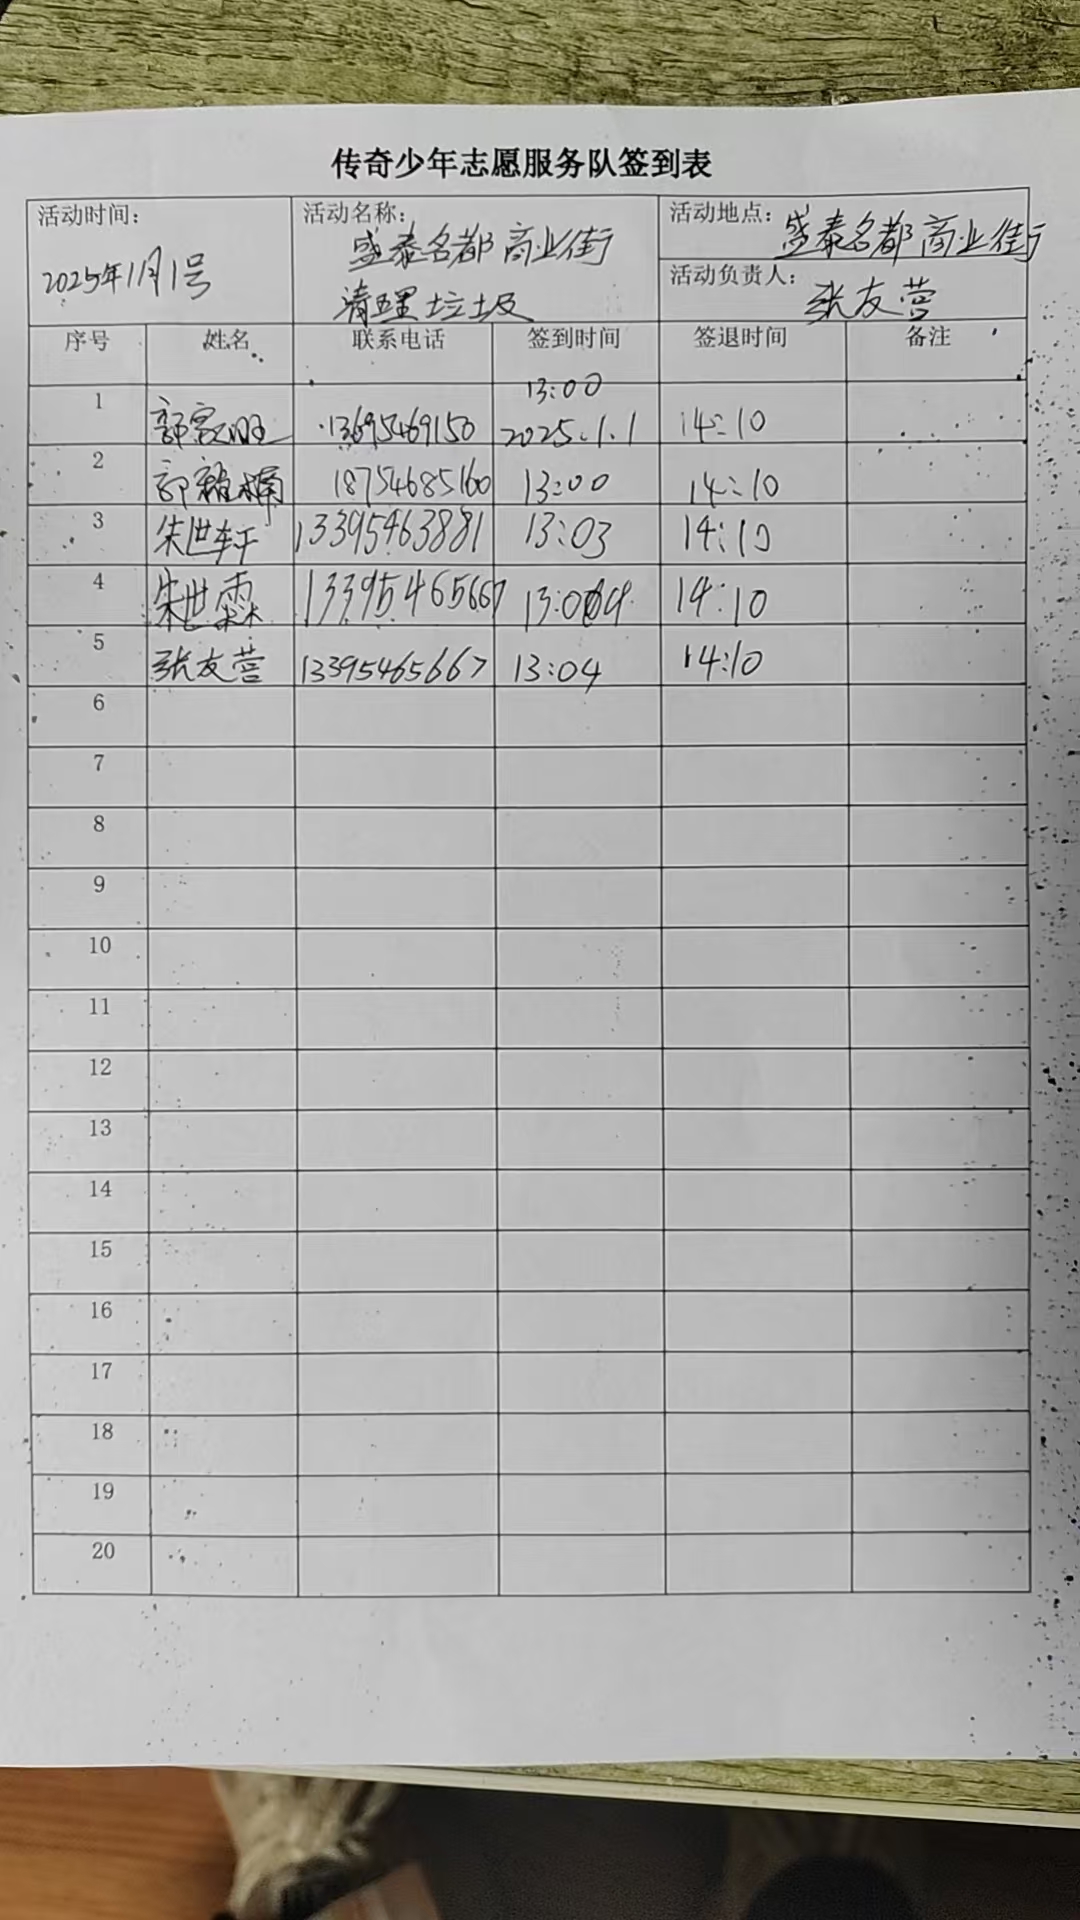 传奇少年志愿服务队签到表
活动时间: 活动名称: 活动地点: 盛泰名都商业街
2025年1月1号 盛泰名都商业街 活动负责人: 张友营
清理垃圾
序号 姓名 联系电话 签到时间 签退时间 备注
13:00
1 郭家旺 13695469150 2025.1.1 14:10
2 郭 楠 18754685160 13:00 14:10
3 朱世轩 13395463881 13:03 14:10
4 朱世霖 13395465667 13:04 14:10
5 张友营 13395465667 13:04 14:10
6
7
8
9
10
11
12
13
14
15
16
17
18
19
20